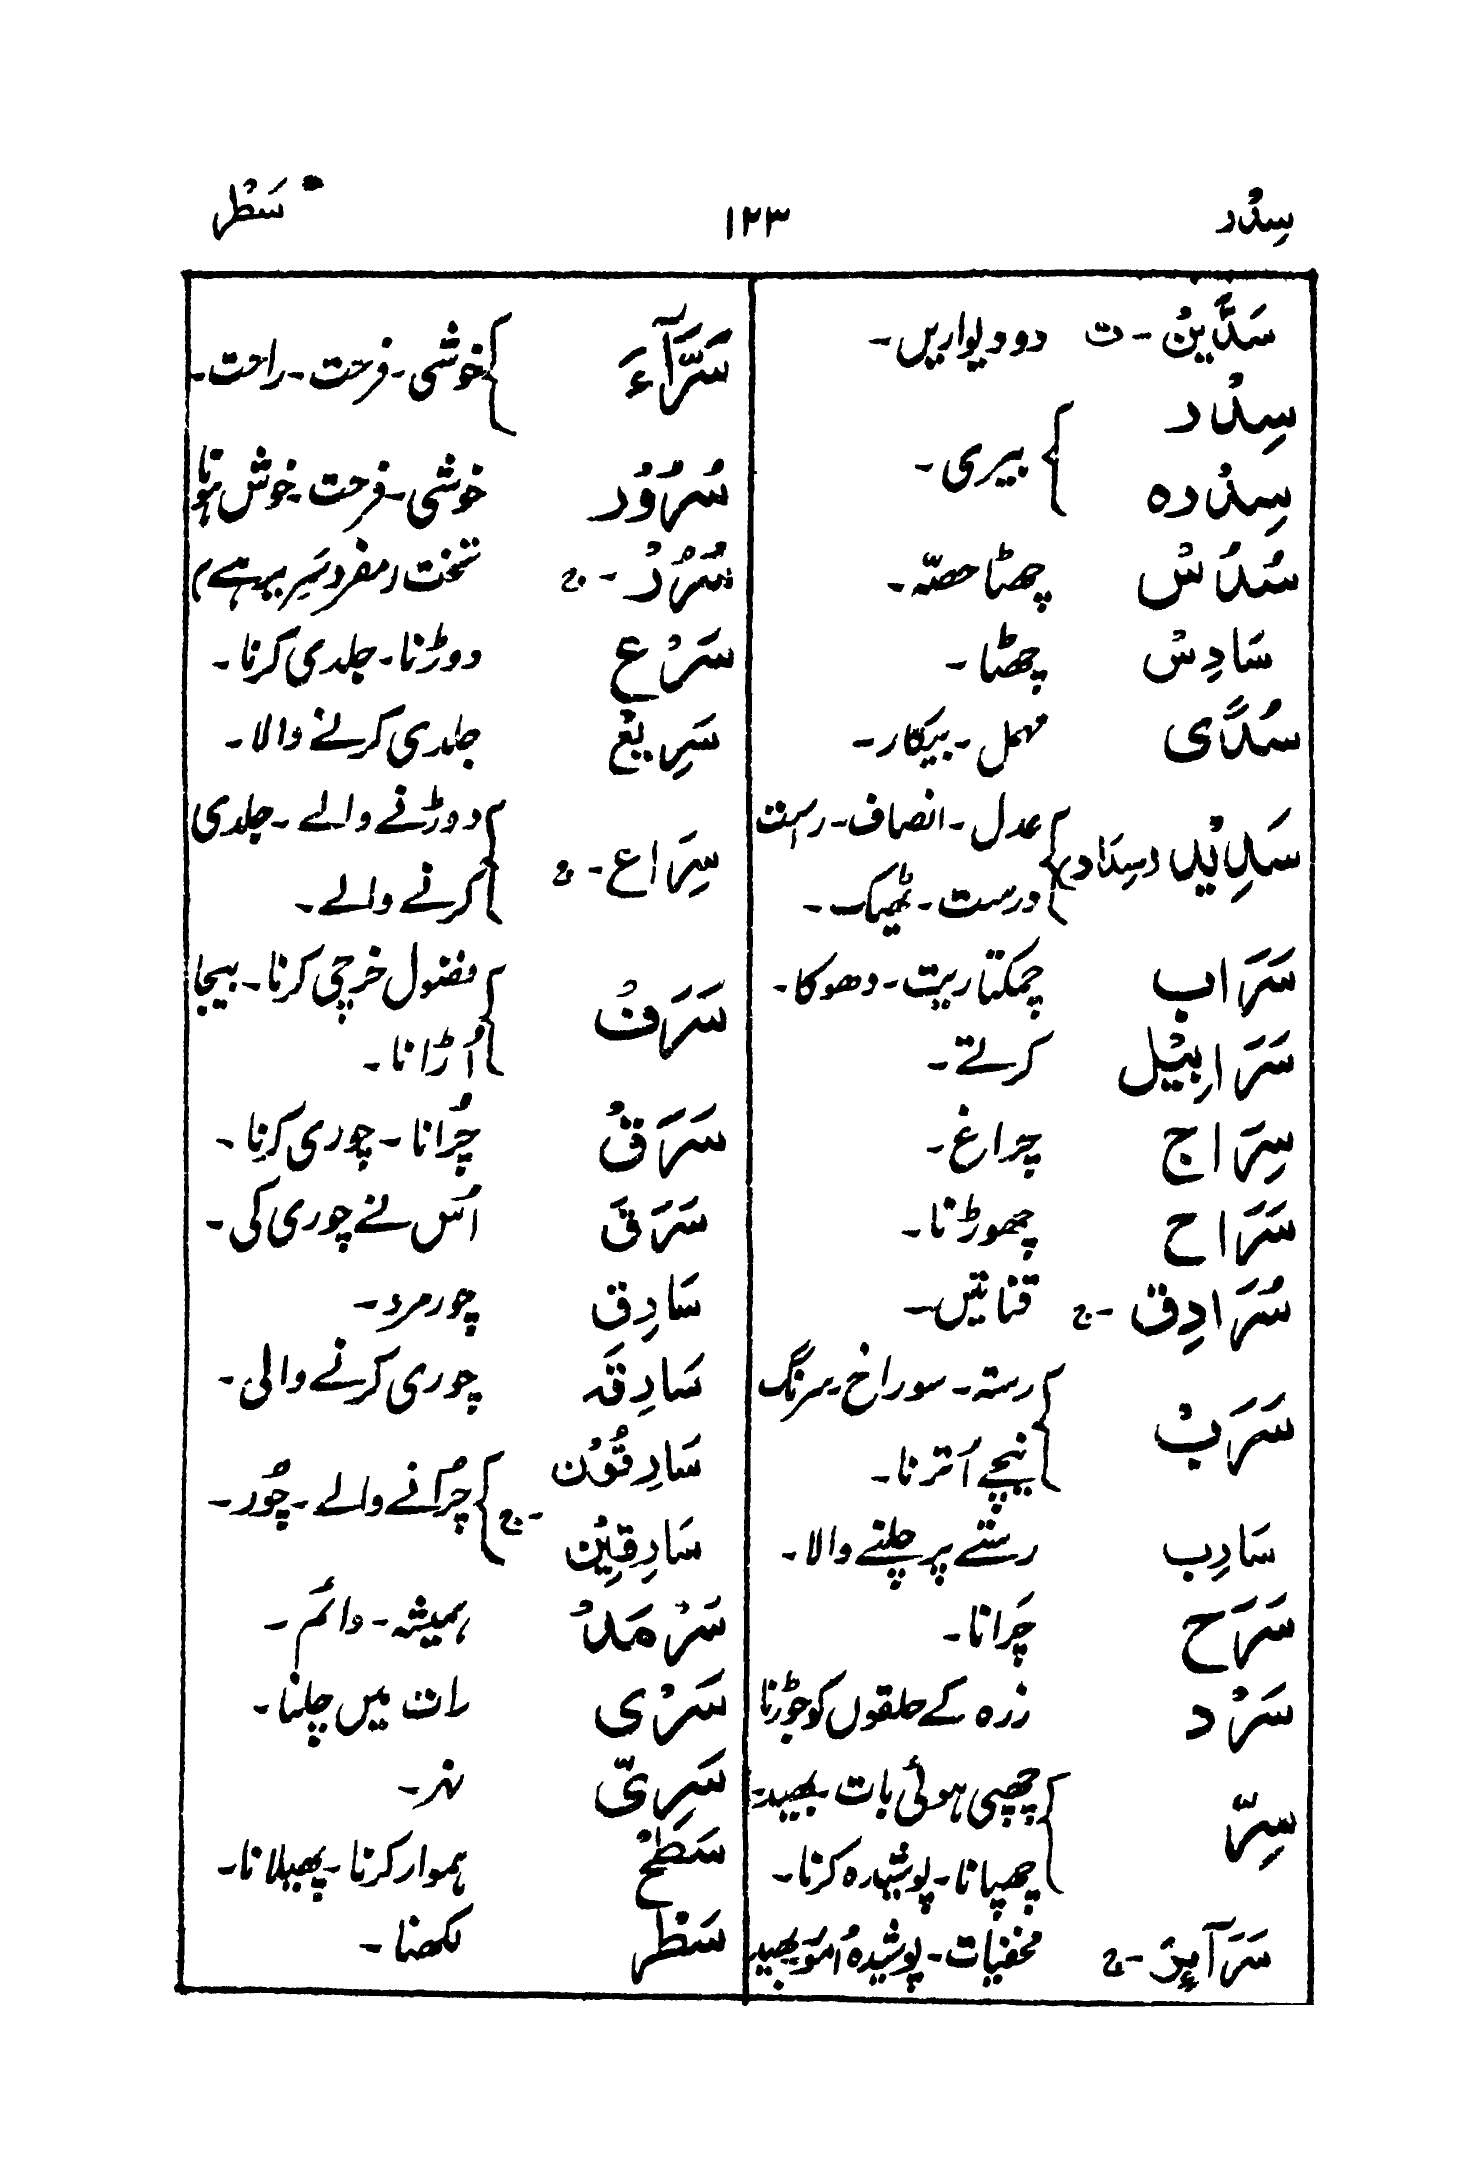 سِدْر ۱۲۳ سَطْر
سَدَّیْنُ - ت دو دیواریں۔
سِدْر
بیری۔
سِدْرہ
سُدُسْ چھٹا حصّہ۔
سَادِسْ چھٹا۔
سُدًی مہمل۔ بیکار۔
سَدِیْد (سِدَاد) عدل۔ انصاف۔ راست
درست۔ ٹھیک۔
سَرَاب چمکتا ریت۔ دھوکا۔
سَرَابِیْل کرتے۔
سِرَاج چراغ۔
سَرَاح چھوڑنا۔
سُرَادِق - ج قناتیں۔
سَرَبْ رستہ۔ سوراخ۔ سرنگ
نیچے اُترنا۔
سَارِب رستے پر چلنے والا۔
سَرَح چَرانا۔
سَرْد زرہ کے حلقوں کو جوڑنا
سِرّ چھپی ہوئی بات۔ بھید۔
چھپانا۔ پوشیدہ کرنا۔
سَرَآئِرَ - ج مخفیات۔ پوشیدہ اُمور۔ بھید
سَرَّآءَ خوشی۔ فرحت۔ راحت۔
سُرُوْر خوشی۔ فرحت۔ خوش ہونا
سُرُرْ - ج تخت (مفرد سَرِیر ہے)
سَرْع دوڑنا۔ جلدی کرنا۔
سَرِیْع جلدی کرنے والا۔
سِرَاع - ج دوڑنے والے۔ جلدی
کرنے والے۔
سَرَفْ فضول خرچی کرنا۔ بیجا
اُڑانا۔
سَرَقْ چُرانا۔ چوری کرنا۔
سَرَقَ اُس نے چوری کی۔
سَارِق چور مرد۔
سَارِقَہ چوری کرنے والی۔
سَارِقُوْن
- ج چُرانے والے۔ چُور۔
سَارِقِیْن
سَرْمَدْ ہمیشہ۔ دائم۔
سَرْی رات میں چلنا۔
سَرِیّ نہر۔
سَطْح ہموار کرنا۔ پھیلانا۔
سَطْر لکھنا۔